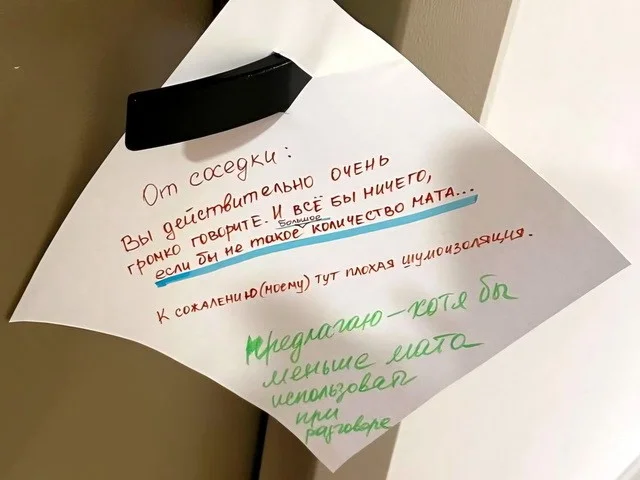 От соседки:
Вы действительно очень
громко говорите. И всё бы ничего,
если бы не такое большое количество мата...
К сожалению (моему) тут плохая шумоизоляция.
Предлагаю - хотя бы
меньше мата
использовать
при
разговоре